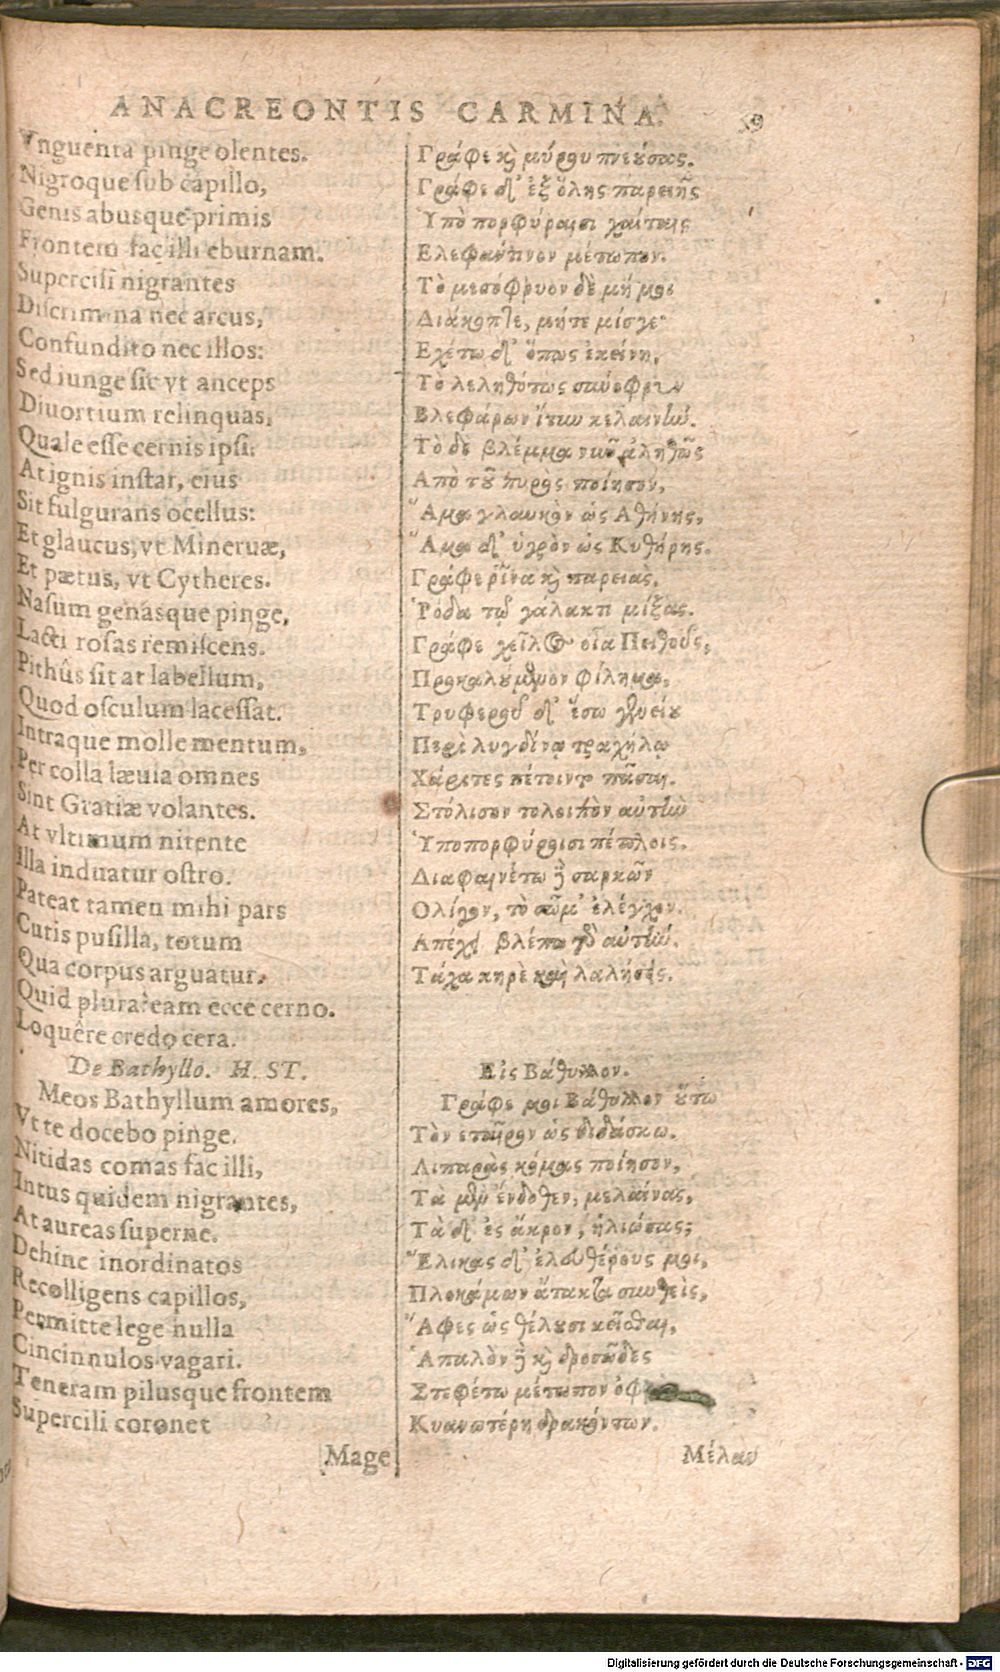 ANACREONTIS CARMINA.
Vnguenta pinge olentes.
Nigroque sub capillo,
Genis abusque primis
Frontem fac illi eburnam.
Supercilî nigrantes
Discrimina nec arcus,
Confundito nec illos:
Sed iunge sic vt anceps
Diuortium relinquas,
Quale esse cernis ipsi.
At ignis instar, eius
Sit fulgurans ocellus:
Et glaucus, vt Mineruæ,
Et pætus, vt Cytheres.
Nasum genasque pinge,
Lacti rosas remiscens.
Pithûs sit at labellum,
Quod osculum lacessat.
Intraque molle mentum,
Per colla læuia omnes
Sint Gratiæ volantes.
At vltimum nitente
Illa induatur ostro.
Pateat tamen mihi pars
Cutis pusilla, totum
Qua corpus arguatur.
Quid plura? eam ecce cerno.
Loquêre credo cera.
De Bathyllo. H. ST.
Meos Bathyllum amores,
Vt te docebo pinge.
Nitidas comas fac illi,
Intus quidem nigrantes,
At aureas superne.
Dehinc inordinatos
Recolligens capillos,
Permitte lege nulla
Cincinnulos vagari.
Teneram pilusque frontem
Supercili coronet
Mage
Γράφε κὶ μύρου πνεύσας.
Γράφε δ' ἐξ ὅλης παρειῆς
Ὑπὸ πορφύραισι χαίταις
Ελεφάντινον μέτωπον.
Τὸ μεσόφρυον δὲ μή μοι
Διάκοπτε, μήτε μίσγε·
Εχέτω δ' ὅπως ἐκείνη,
Τὸ λεληθότως σύνοφρυν
Βλεφάρων ἴτυν κελαινήν.
Τὸ δὲ βλέμμα νῦν ἀληθῶς
Απὸ τοῦ πυρὸς ποίησον,
Ἅμα γλαυκὸν ὡς Αθήνης,
Ἅμα δ' ὑγρὸν ὡς Κυθήρης.
Γράφε ῥῖνα κὶ παρειὰς,
Ῥόδα τῷ γάλακτι μίξας.
Γράφε χεῖλος οἷα Πειθοῦς,
Προκαλούμενον φίλημα,
Τρυφεροῦ δ' ἔσω γενείου
Περὶ λυγδίνῳ τραχήλῳ
Χάριτες πέτοιντο πᾶσαι.
Στόλισον τολοιπὸν αὐτὴν
Ὑποπορφύροισι πέπλοις.
Διαφαινέτω δὲ σαρκῶν
Ολίγον, τὸ σῶμ' ἐλέγχον.
Απέχει βλέπω γὸ αὐτήν.
Τάχα κηρὲ καὶ λαλήσεις.
Εἰς Βάθυλλον.
Γράφε μοι Βάθυλλον οὕτω
Τὸν ἑταῖρον ὡς διδάσκω.
Λιπαρὰς κόμας ποίησον,
Τὰ μὲν ἔνδοθεν, μελαίνας,
Τὰ δ' ἐς ἄκρον, ἡλιώσας;
Ἕλικας δ' ἐλευθέρους μοι,
Πλοκάμων ἄτακτα συνθεὶς,
Ἄφες ὡς θέλουσι κεῖσθαι,
Ἁπαλὸν δὲ κὶ δροσῶδες
Στεφέτω μέτωπον
Κυανωτέρη δρακόντων.
Μέλαν
Digitalisierung gefördert durch die Deutsche Forschungsgemeinschaft - DFG